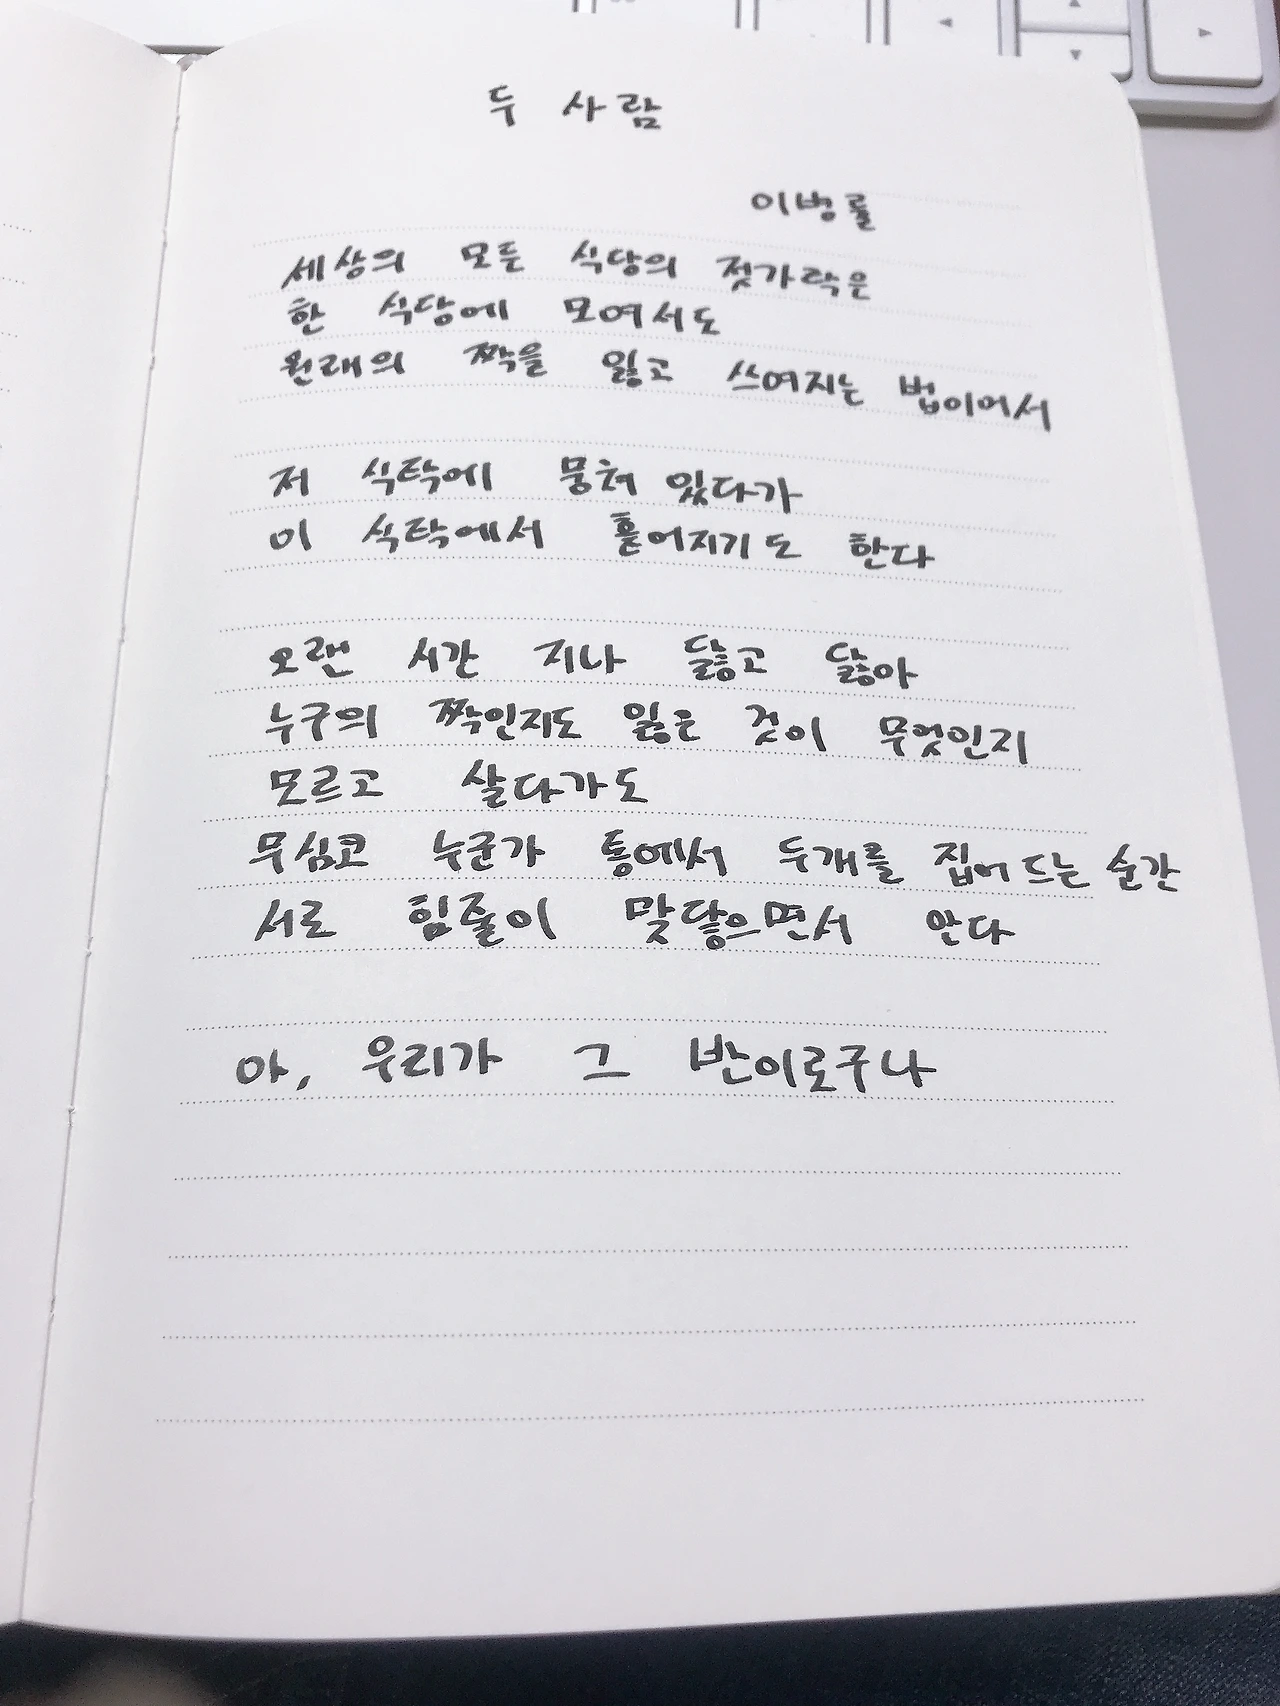 두 사람
이병률
세상의 모든 식당의 젓가락은
한 식당에 모여서도
원래의 짝을 잃고 쓰여지는 법이어서
저 식탁에 뭉쳐 있다가
이 식탁에서 흩어지기도 한다
오랜 시간 지나 닳고 닳아
누구의 짝인지도 잃은 것이 무엇인지
모르고 살다가도
무심코 누군가 통에서 두개를 집어 드는 순간
서로 힘줄이 맞닿으면서 안다
아, 우리가 그 반이로구나